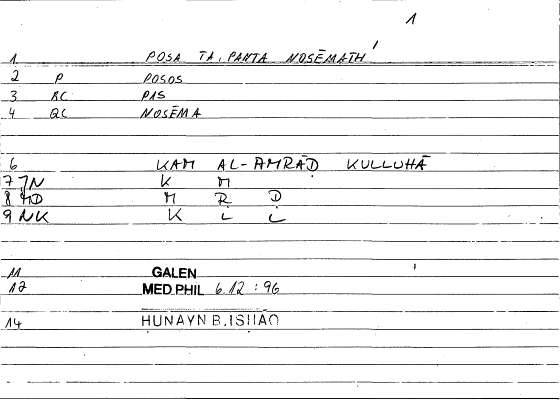 1
1 POSA TA, PANTA NOSĒMATH'
2 P POSOS
3 RC PAS
4 QC NOSĒMA
6 KAM AL-AMRĀḌ KULLUHĀ
7 JN K M
8 MD M R Ḍ
9 NK K L L
11 GALEN
12 MED.PHIL 6.12 : 96
14 HUNAYN B.ISḤĀQ